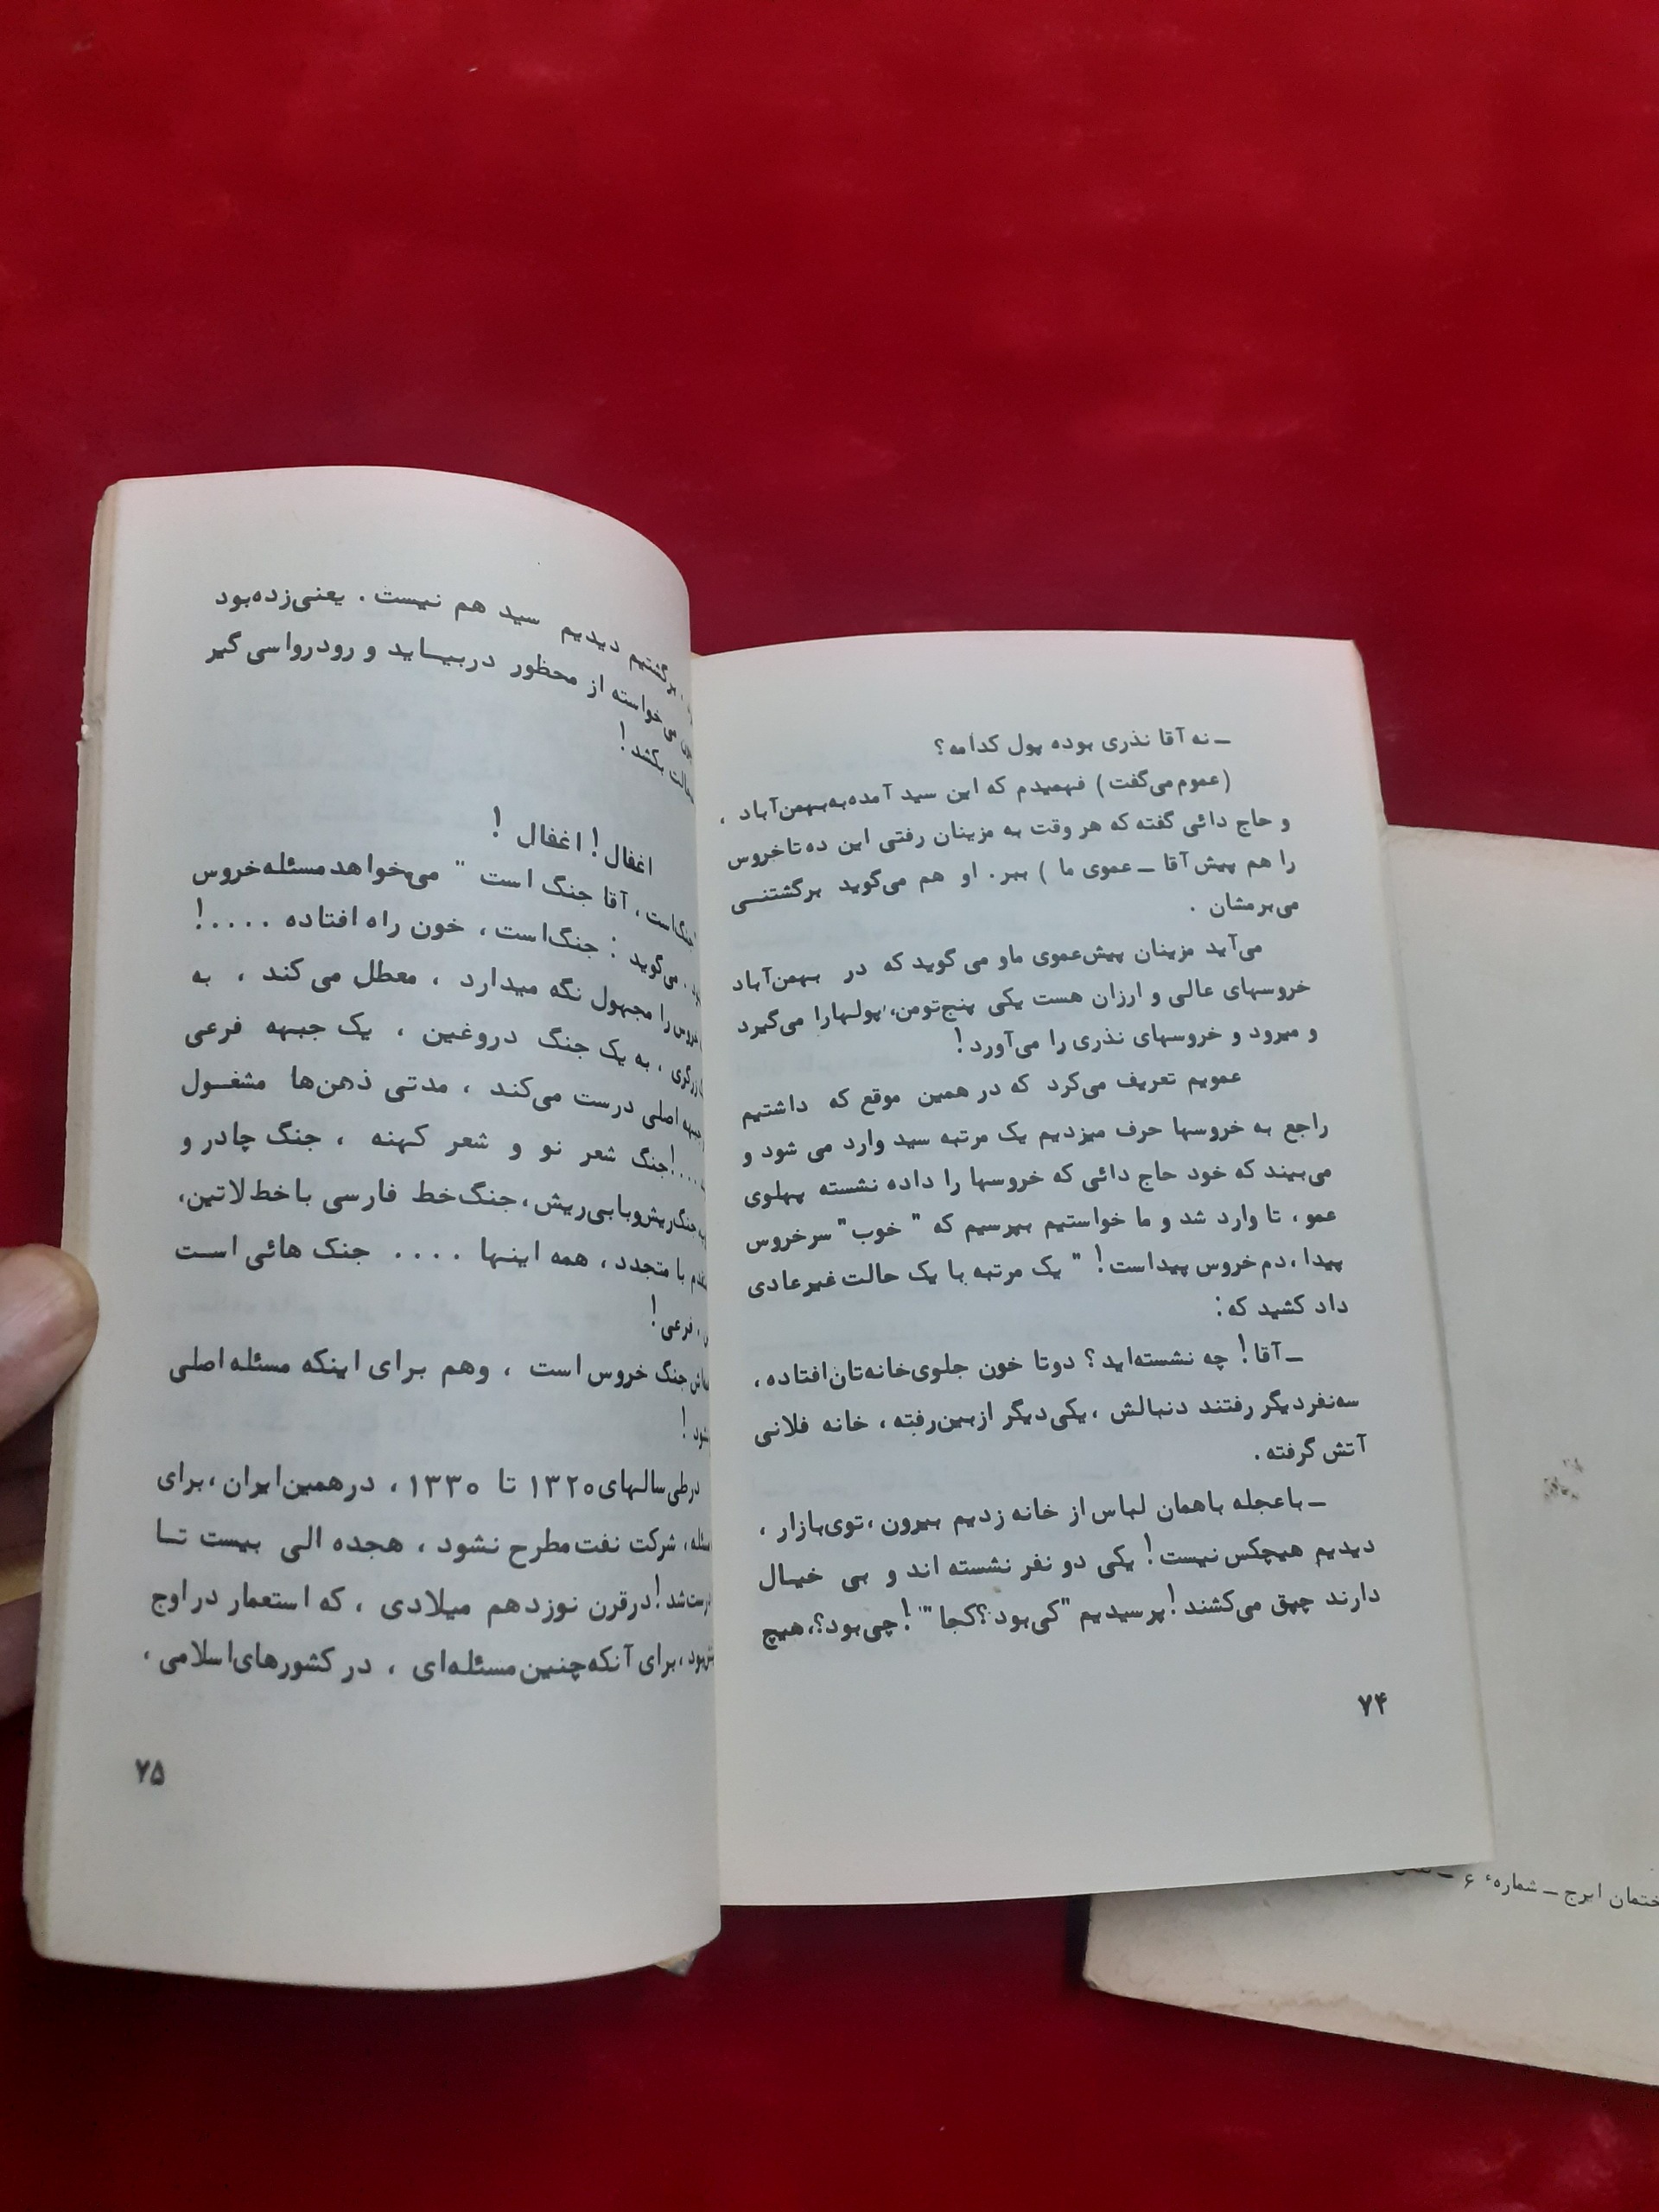 ـ نه آقا نذری بوده پول کدامه؟
(عموم می‌گفت) فهمیدم که این سید آمده‌به‌بهمن‌آباد ،
و حاج دائی گفته که هر وقت به مزینان رفتی این ده‌تاخروس
را هم پیش‌آقا ـ عموی ما ) ببر. او هم می‌گوید برگشتنـی
می‌برمشان .
می‌آید مزینان پیش‌عموی ماو می‌گوید که در بهمن‌آباد
خروسهای عالی و ارزان هست یکی پنج‌تومن، پولهارا می‌گیرد
و میرود و خروسهای نذری را می‌آورد!
عمویم تعریف می‌کرد که در همین موقع که داشتیم
راجع به خروسها حرف میزدیم یک مرتبه سید وارد می شود و
می‌بیند که خود حاج دائی که خروسها را داده نشسته پهلوی
عمو ، تا وارد شد و ما خواستیم بپرسیم که " خوب" سرخروس
پیدا ،دم‌خروس‌پیداست! " یک مرتبه با یک حالت‌غیرعادی
داد کشید که:
ـ آقا! چه نشسته‌اید؟ دوتا خون جلوی‌خانه‌تان‌افتاده ،
سه‌نفردیگر رفتند دنبالش ،یکی‌دیگر ازبین‌رفته ، خانه فلانی
آتش‌گرفته.
ـ باعجله باهمان لباس‌از خانه زدیم بیرون ،توی‌بازار ،
دیدیم هیچکس‌نیست! یکی دو نفر نشسته اند و بی خیـال
دارند چپق می‌کشند!پرسیدیم "کی‌بود؟کجا"! چی‌بود؟، هیچ
۷۴
برگشتیم دیدیم سید هم نیست. یعنی‌زده‌بود
می‌خواسته از محظور دربیـاید و رودرواسی گیر
بکشد!
اغفال! اغفال !
جنگ‌است ، آقا جنگ است " می‌خواهد‌مسئله‌خروس
می‌گوید : جنگ‌است ، خون راه افتاده ....!
خروس‌را مجهول نگه میدارد ، معطل می‌کند ، به
زرگری ، به یک جنگ دروغین ، یک جبهه فرعی
اصلی درست می‌کند ، مدتی ذهن‌ها مشغـول
....!جنگ شعر نو و شعر کهنه ، جنگ چادر و
جنگ‌ریش‌وبابی‌ریش ،جنگ‌خط فارسی باخط‌لاتین،
با متجدد ، همه اینـها .... جنک هائی اسـت
، فرعی!
جنگ خروس است ، وهم برای اینکه مسئله‌اصلی
نشود !
درطی‌سالهای۱۳۲۰ تا ۱۳۳۰ ، درهمین‌ایران ،برای
، شرکت نفت‌مطرح نشود ، هجده الی بیست تـا
درست‌شد!درقرن نوزدهم میلادی ، که استعمار دراوج
بود ،برای آنکه‌چنین‌مسئله‌ای ، در کشورهای‌اسلامی ،
۷۵
ختمان ایرج ـ شمارهٔ ۶ ـ